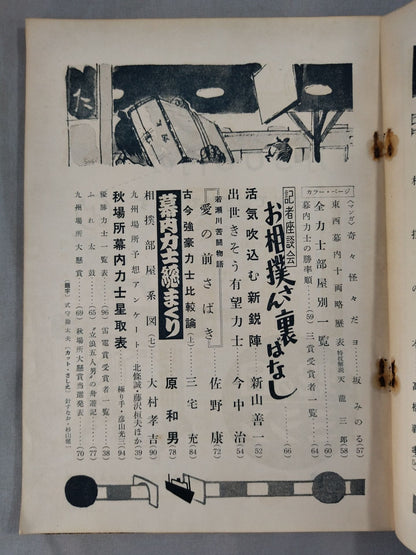 た
カラー・ページ
〈マンガ〉奇々怪々だヨ 坂みのる 57
東西幕内十両略歴表 特技解説 天竜三郎 58
全力士部屋別一覧 60
幕内力士の勝率順 (59) 三賞受賞者一覧 64
記者座談会 お相撲さん裏ばなし 66
活気吹込む新鋭陣 新山善一 52
出世きそう有望力士 今中治 54
若瀬川苦闘物語 『愛の前さばき』 佐野康 72
古今強豪力士比較論(上) 三宅充 84
幕内力士総まくり 原和男 78
相撲部屋系図(七) 大村孝吉 90
九州場所予想アンケート 北條誠・藤沢桓夫ほか 39
秋場所幕内力士星取表 極り手・彦山光三 94
優勝力士一覧表 (96) 雷電賞受賞者一覧 38
ふれ太鼓 (65) "立浪五人男"の舟遊記 77
九州場所大懸賞 (69) 秋場所大懸賞当選発表 70